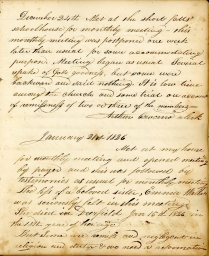 December 24th Met at the short falls
schoolhouse for monthly meeting - this
monthly meeting was postponed one week
later than usual for some accommodating
purpose. Meeting began as usual Several
spake of Gods goodness, but some were
backward and said nothing. It is low time
among the church and some trial on account
of remissness of two or three of the members
clerk
January 21st 1836
Met at my house
for monthly meeting and opened meeting
by prayer and this was followed by
testimonies as usual for monthly meeting
The loss of a beloved sister,
was seriously felt in this meeting
She died in Jan 15th 1836 in
the year of her age
religion and we need a reformation